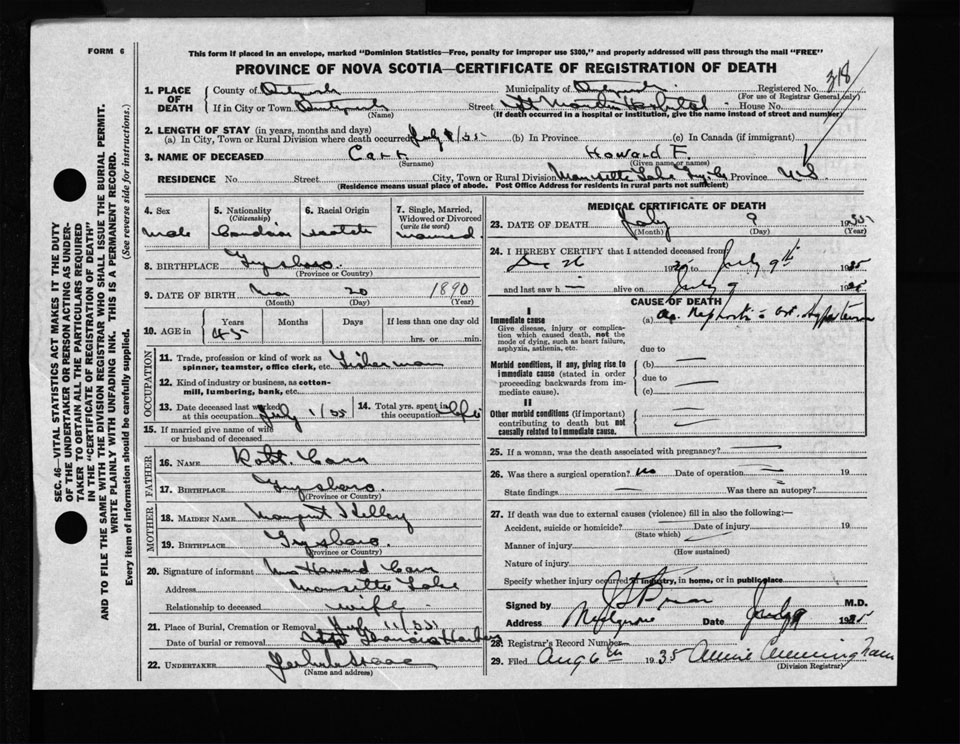 FORM 6
This form if placed in an envelope, marked "Dominion Statistics—Free, penalty for improper use $300," and properly addressed will pass through the mail "FREE"
PROVINCE OF NOVA SCOTIA—CERTIFICATE OF REGISTRATION OF DEATH
318
1. PLACE OF DEATH
County of Municipality of Registered No.
(For use of Registrar General only)
If in City or Town Street St Martha Hospital House No.
(Name) (If death occurred in a hospital or institution, give the name instead of street and number)
2. LENGTH OF STAY (in years, months and days)
(a) In City, Town or Rural Division where death occurred July (b) In Province (c) In Canada (if immigrant)
3. NAME OF DECEASED Carr Howard F.
(Surname) (Given name or names)
RESIDENCE No. Street City, Town or Rural Division Lake Province N.S.
(Residence means usual place of abode. Post Office Address for residents in rural parts not sufficient)
4. Sex Male
5. Nationality (Citizenship) Canadian
6. Racial Origin Scotch
7. Single, Married, Widowed or Divorced (write the word) Married
8. BIRTHPLACE Guysboro.
(Province or Country)
9. DATE OF BIRTH 20 1890
(Month) (Day) (Year)
10. AGE in Years Months Days If less than one day old
45 hrs. or min.
OCCUPATION
11. Trade, profession or kind of work as spinner, teamster, office clerk, etc. Fisherman
12. Kind of industry or business, as cotton-mill, lumbering, bank, etc.
13. Date deceased last worked at this occupation July 1/35
14. Total yrs. spent in this occupation life
15. If married give name of wife or husband of deceased
FATHER
16. NAME Robt. Carr
17. BIRTHPLACE Guysboro.
(Province or Country)
MOTHER
18. MAIDEN NAME Margaret
19. BIRTHPLACE Guysboro.
(Province or Country)
20. Signature of informant Mrs Howard Carr
Address Lake
Relationship to deceased wife.
21. Place of Burial, Cremation or Removal July 11/35
Date of burial or removal Harbour
22. UNDERTAKER
(Name and address)
MEDICAL CERTIFICATE OF DEATH
23. DATE OF DEATH July 9 1935
(Month) (Day) (Year)
24. I HEREBY CERTIFY that I attended deceased from
Dec 26 19 to July 9th 1935
and last saw h alive on July 9 1935
CAUSE OF DEATH
I
Immediate cause
Give disease, injury or complication which caused death, not the mode of dying, such as heart failure, asphyxia, asthenia, etc.
(a)
due to
Morbid conditions, if any, giving rise to immediate cause (stated in order proceeding backwards from immediate cause).
(b)
due to
(c)
II
Other morbid conditions (if important) contributing to death but not causally related to immediate cause.
25. If a woman, was the death associated with pregnancy?
26. Was there a surgical operation? No Date of operation 19
State findings Was there an autopsy?
27. If death was due to external causes (violence) fill in also the following:—
Accident, suicide or homicide? Date of injury 19
(State which)
Manner of injury
(How sustained)
Nature of injury
Specify whether injury occurred in industry, in home, or in public place
Signed by M.D.
Address Date July 9 1935
28. Registrar's Record Number
29. Filed Aug 6th 1935 Annie Cunningham
(Division Registrar)
SEC. 46—VITAL STATISTICS ACT MAKES IT THE DUTY OF THE UNDERTAKER OR PERSON ACTING AS UNDERTAKER TO OBTAIN ALL THE PARTICULARS REQUIRED IN THE "CERTIFICATE OF REGISTRATION OF DEATH" AND TO FILE THE SAME WITH THE DIVISION REGISTRAR WHO SHALL ISSUE THE BURIAL PERMIT.
WRITE PLAINLY WITH UNFADING INK. THIS IS A PERMANENT RECORD.
Every item of information should be carefully supplied. (See reverse side for instructions.)